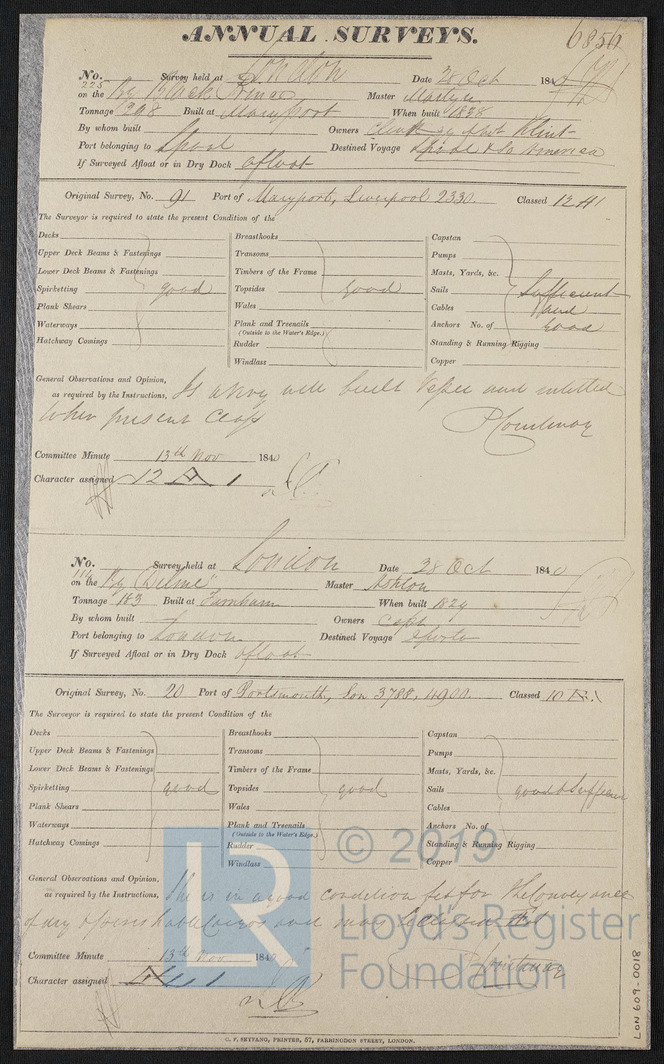 ANNUAL SURVEYS. 6850
No. 225 Survey held at London Date 28 Oct 184
on the Bg Black Prince Master Martyn
Tonnage 208 Built at Maryport When built 1838
By whom built Owners Klint
Port belonging to Lpool Destined Voyage Lpool & So America
If Surveyed Afloat or in Dry Dock afloat
Original Survey, No. 91 Port of Maryport, Liverpool 2330 Classed 12 A1
The Surveyor is required to state the present Condition of the
Decks Breasthooks Capstan
Upper Deck Beams & Fastenings Transoms Pumps
Lower Deck Beams & Fastenings Timbers of the Frame Masts, Yards, &c.
Spirketting good Topsides good Sails Sufficient
Plank Shears Wales Cables and
Waterways Plank and Treenails Anchors No. of good
(Outside to the Water's Edge.)
Hatchway Comings Rudder Standing & Running Rigging
Windlass Copper
General Observations and Opinion, Is a very well built Vessel and intitled
as required by the Instructions,
to her present Class P Courtenay
Committee Minute 13th Nov 1840
Character assigned 12 A 1
No. 114 Survey held at London Date 28 Oct 1840
on the Bg "Delme" Master Ashton
Tonnage 183 Built at Farnham When built 1829
By whom built Owners Capt
Port belonging to London Destined Voyage Oporto
If Surveyed Afloat or in Dry Dock afloat
Original Survey, No. 20 Port of Portsmouth, Lon 3788, 4900. Classed 10 A.1
The Surveyor is required to state the present Condition of the
Decks Breasthooks Capstan
Upper Deck Beams & Fastenings Transoms Pumps
Lower Deck Beams & Fastenings Timbers of the Frame Masts, Yards, &c.
Spirketting good Topsides good Sails good & Sufficient
Plank Shears Wales Cables
Waterways Plank and Treenails Anchors No. of
(Outside to the Water's Edge.)
Hatchway Comings Rudder Standing & Running Rigging
Windlass Copper
© 2019
Lloyd's Register
Foundation
General Observations and Opinion, She is in a good condition fit for the Conveyance
as required by the Instructions,
of dry & perishable Cargo and may
P Courtenay
Committee Minute 13th Nov 1840
Character assigned A 1
C. F. SEYFANG, PRINTER, 57, FARRINGDON STREET, LONDON.
LON 609-0018